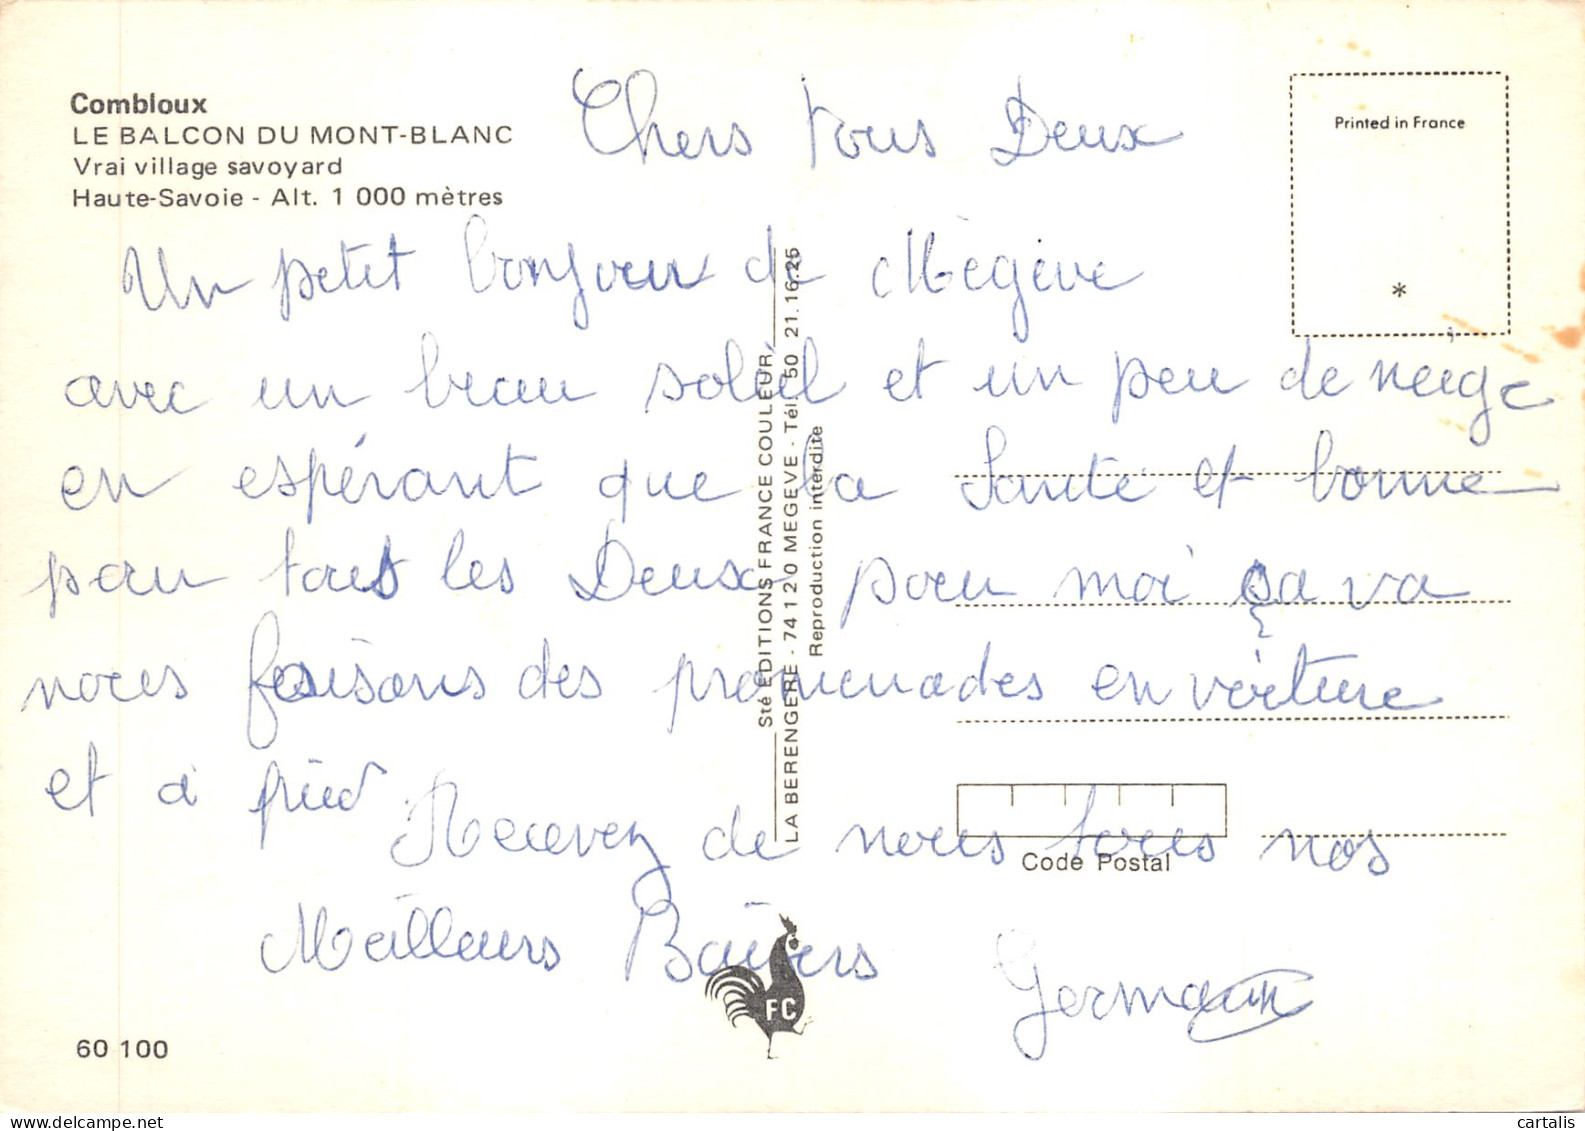 Combloux
LE BALCON DU MONT-BLANC
Vrai village savoyard
Haute-Savoie - Alt. 1 000 mètres
Printed in France
*
Chers tous Deux
Un petit bonjour de Mègève
avec un beau soleil et un peu de neige
en espérant que la Santé et bonne
pour tous les Deux pour moi ça va
nous faisons des promenades en voiture
et à pied
Recevez de nous tous nos
Meilleurs Baisers
Germaine
Sté EDITIONS FRANCE COULEUR
LA BERENGERE - 74120 MEGEVE - Tél. 50 21.16.25
Reproduction interdite
Code Postal
FC
60 100
cartalis